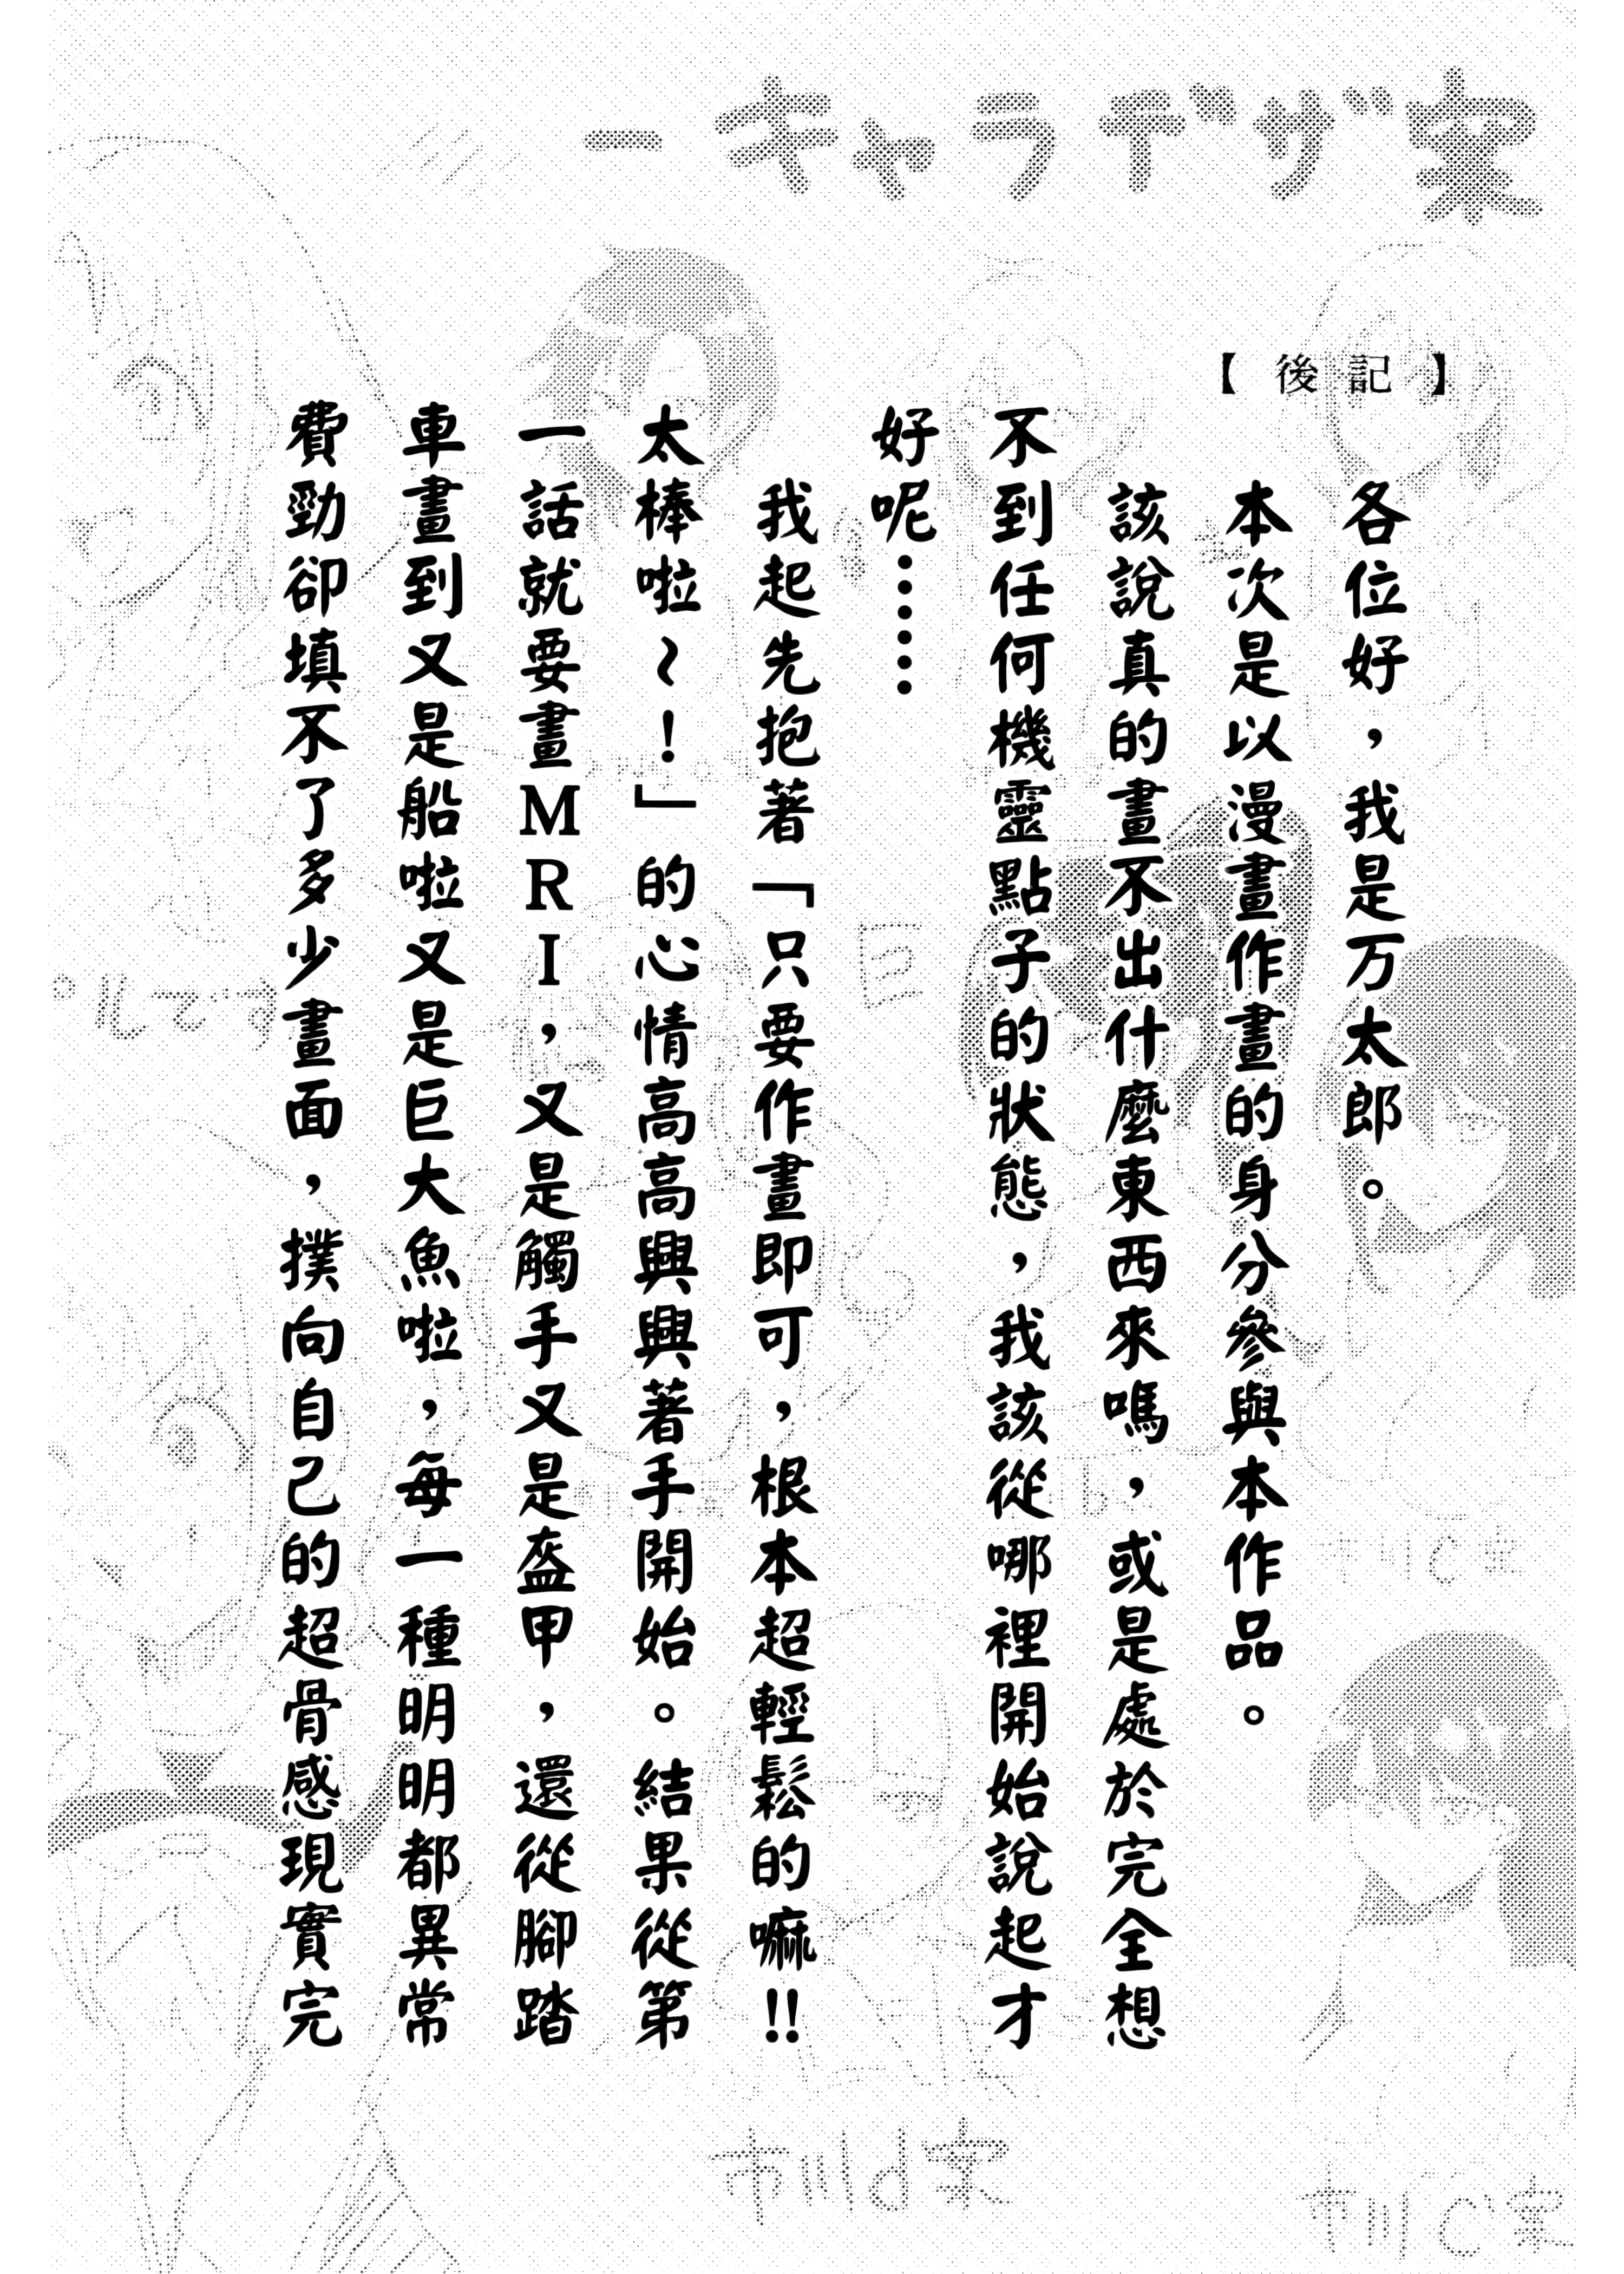 ーキャラデザ案
【後記】
各位好，我是万太郎。
本次是以漫畫作畫的身分參與本作品。
該說真的畫不出什麼東西來嗎，或是處於完全想
不到任何機靈點子的狀態，我該從哪裡開始說起才
好呢……
我起先抱著「只要作畫即可，根本超輕鬆的嘛!!
太棒啦～！」的心情高高興興著手開始。結果從第
一話就要畫MRI，又是觸手又是盔甲，還從腳踏
車畫到又是船啦又是巨大魚啦，每一種明明都異常
費勁卻填不了多少畫面，撲向自己的超骨感現實完
市川d案
市川C案